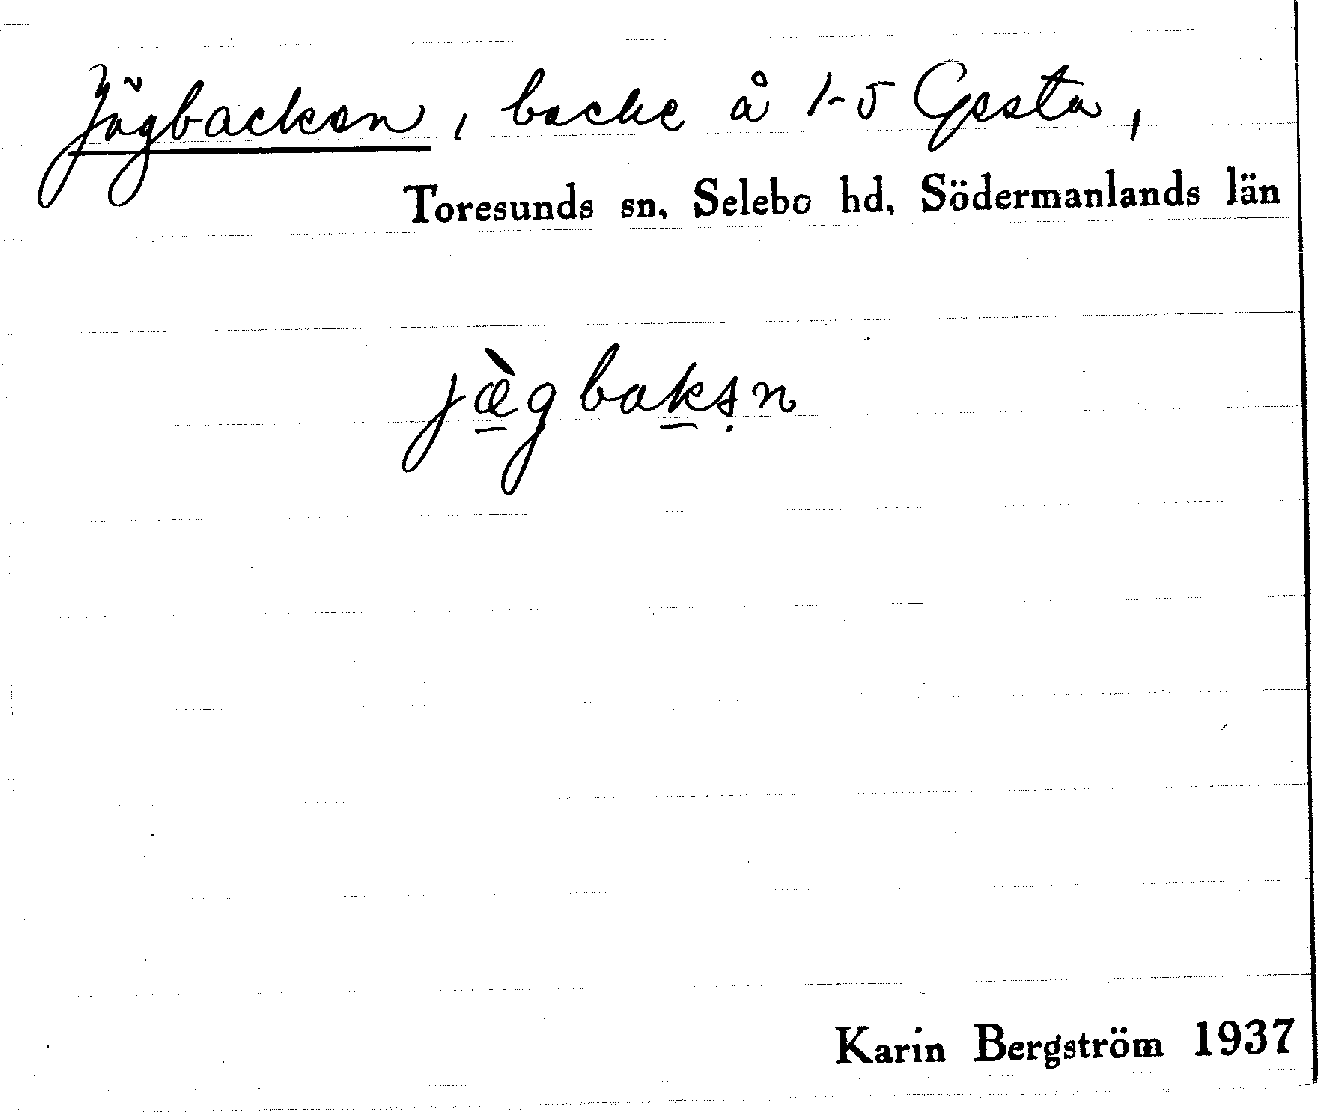 Jägbacken, backe å 1-5 Gesta,
Toresunds sn, Selebo hd, Södermanlands län
jæ̀gbakən
Karin Bergström 1937